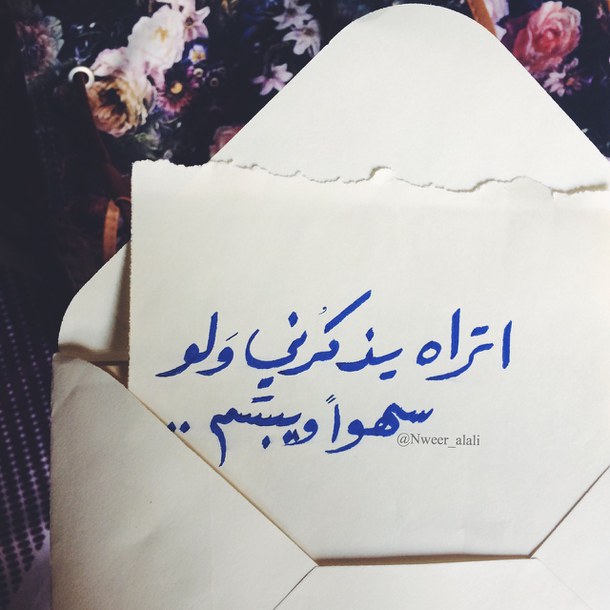 اتراه يذكُرني وَلو
سهواً ويبتسم ..
@Nweer_alali